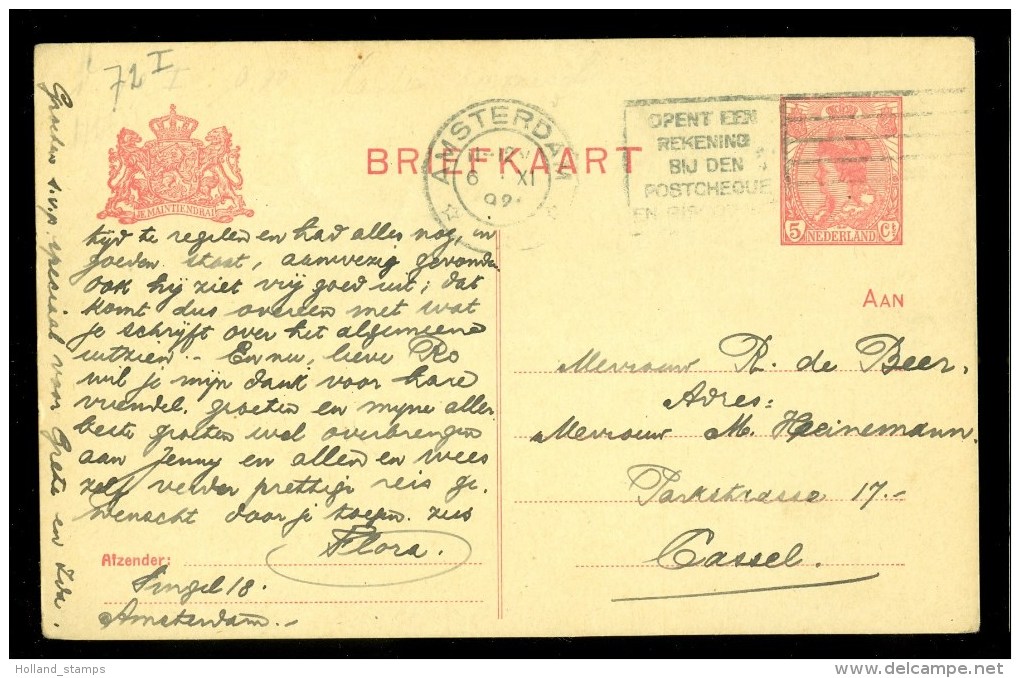 72 I
Groeten s.v.p. speciaal voor Grete en
AMSTERDAM
6 XI
BRIEFKAART
OPENT EEN
REKENING
BIJ DEN
POSTCHEQUE
EN
5 Ct
NEDERLAND
JE MAINTIENDRAI
tijd te regelen en had alles nog, in
goeden staat, aanwezig gevonden
ook hij ziet vrij goed uit; dat
komt dus overeen met wat
je schrijft over het algemeene
uitzien.- En nu, lieve Ro
wil je mijn dank voor hare
vriendel. groeten en mijne aller
beste groeten wel overbrengen
aan Jenny en allen en wees
zelf verder prettige reis ge-
wenscht door je toegen. zus
Flora.
Afzender:
Singel 18.
Amsterdam.-
AAN
Mevrouw R. de Beer.
Adres:
Mevrouw M. Heinemann.
Parkstrasse 17.-
Cassel.
Holland_stamps
www.delcampe.net